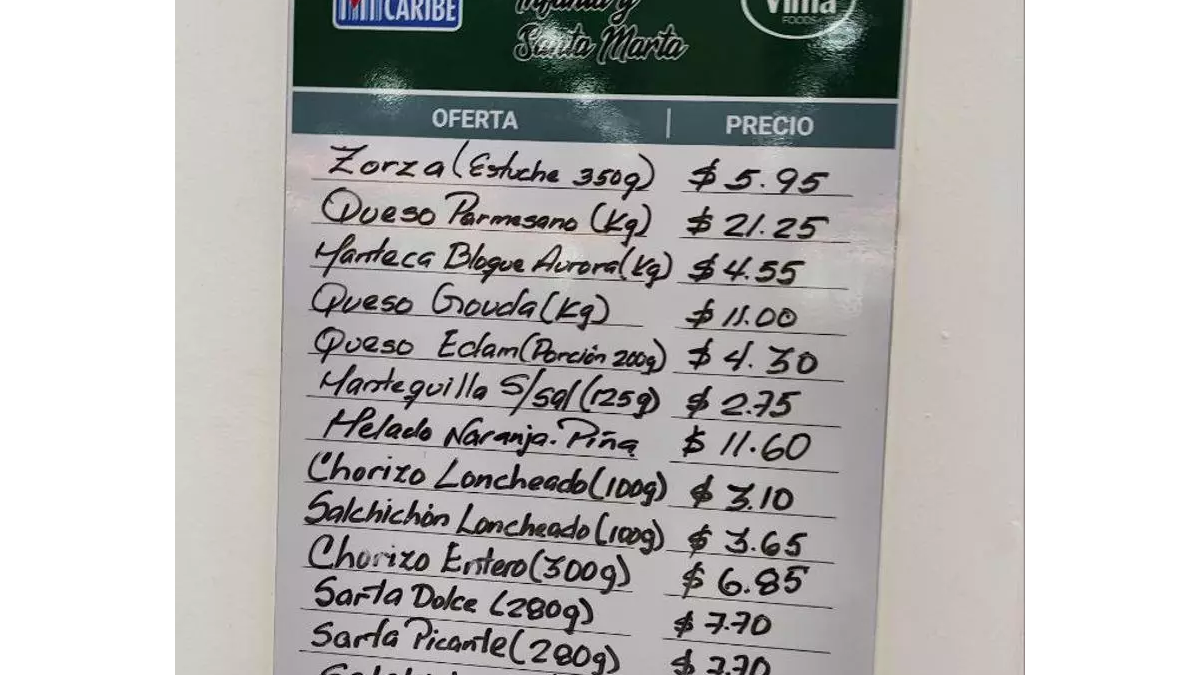 CARIBE
Infanta y
Santa Marta
Vima
FOODS
OFERTA | PRECIO
Zorza (Estuche 350g) $ 5.95
Queso Parmesano (Kg) $ 21.25
Manteca Bloque Aurora (Kg) $ 4.55
Queso Gouda (Kg) $ 11.00
Queso Edam (Porción 200g) $ 4.30
Mantequilla S/sal (125g) $ 2.75
Helado Naranja. Piña $ 11.60
Chorizo Loncheado (100g) $ 3.10
Salchichón Loncheado (100g) $ 3.65
Chorizo Entero (300g) $ 6.85
Sarta Dolce (280g) $ 7.70
Sarta Picante (280g) $ 7.70